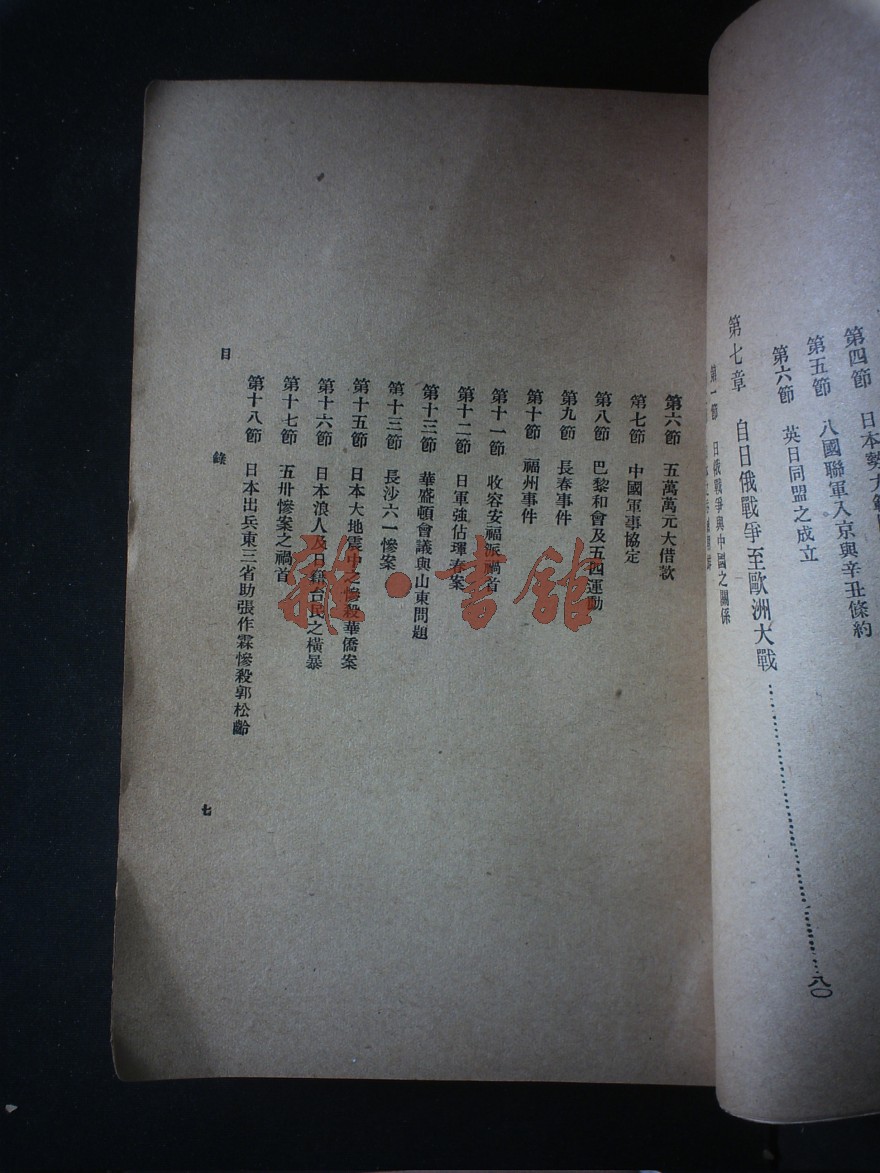 第四節　日本勢力範圍
第五節　八國聯軍入京與辛丑條約
第六節　英日同盟之成立
第七章　自日俄戰爭至歐洲大戰……八〇
第一節　日俄戰爭與中國之關係
第六節　五萬萬元大借款
第七節　中國軍事協定
第八節　巴黎和會及五四運動
第九節　長春事件
第十節　福州事件
第十一節　收容安福派禍首
第十二節　日軍強佔琿春案
第十三節　華盛頓會議與山東問題
第十三節　長沙六一慘案
第十五節　日本大地震中之慘殺華僑案
第十六節　日本浪人及日籍台民之橫暴
第十七節　五卅慘案之禍首
第十八節　日本出兵東三省助張作霖慘殺郭松齡
目錄
七
雜·書館